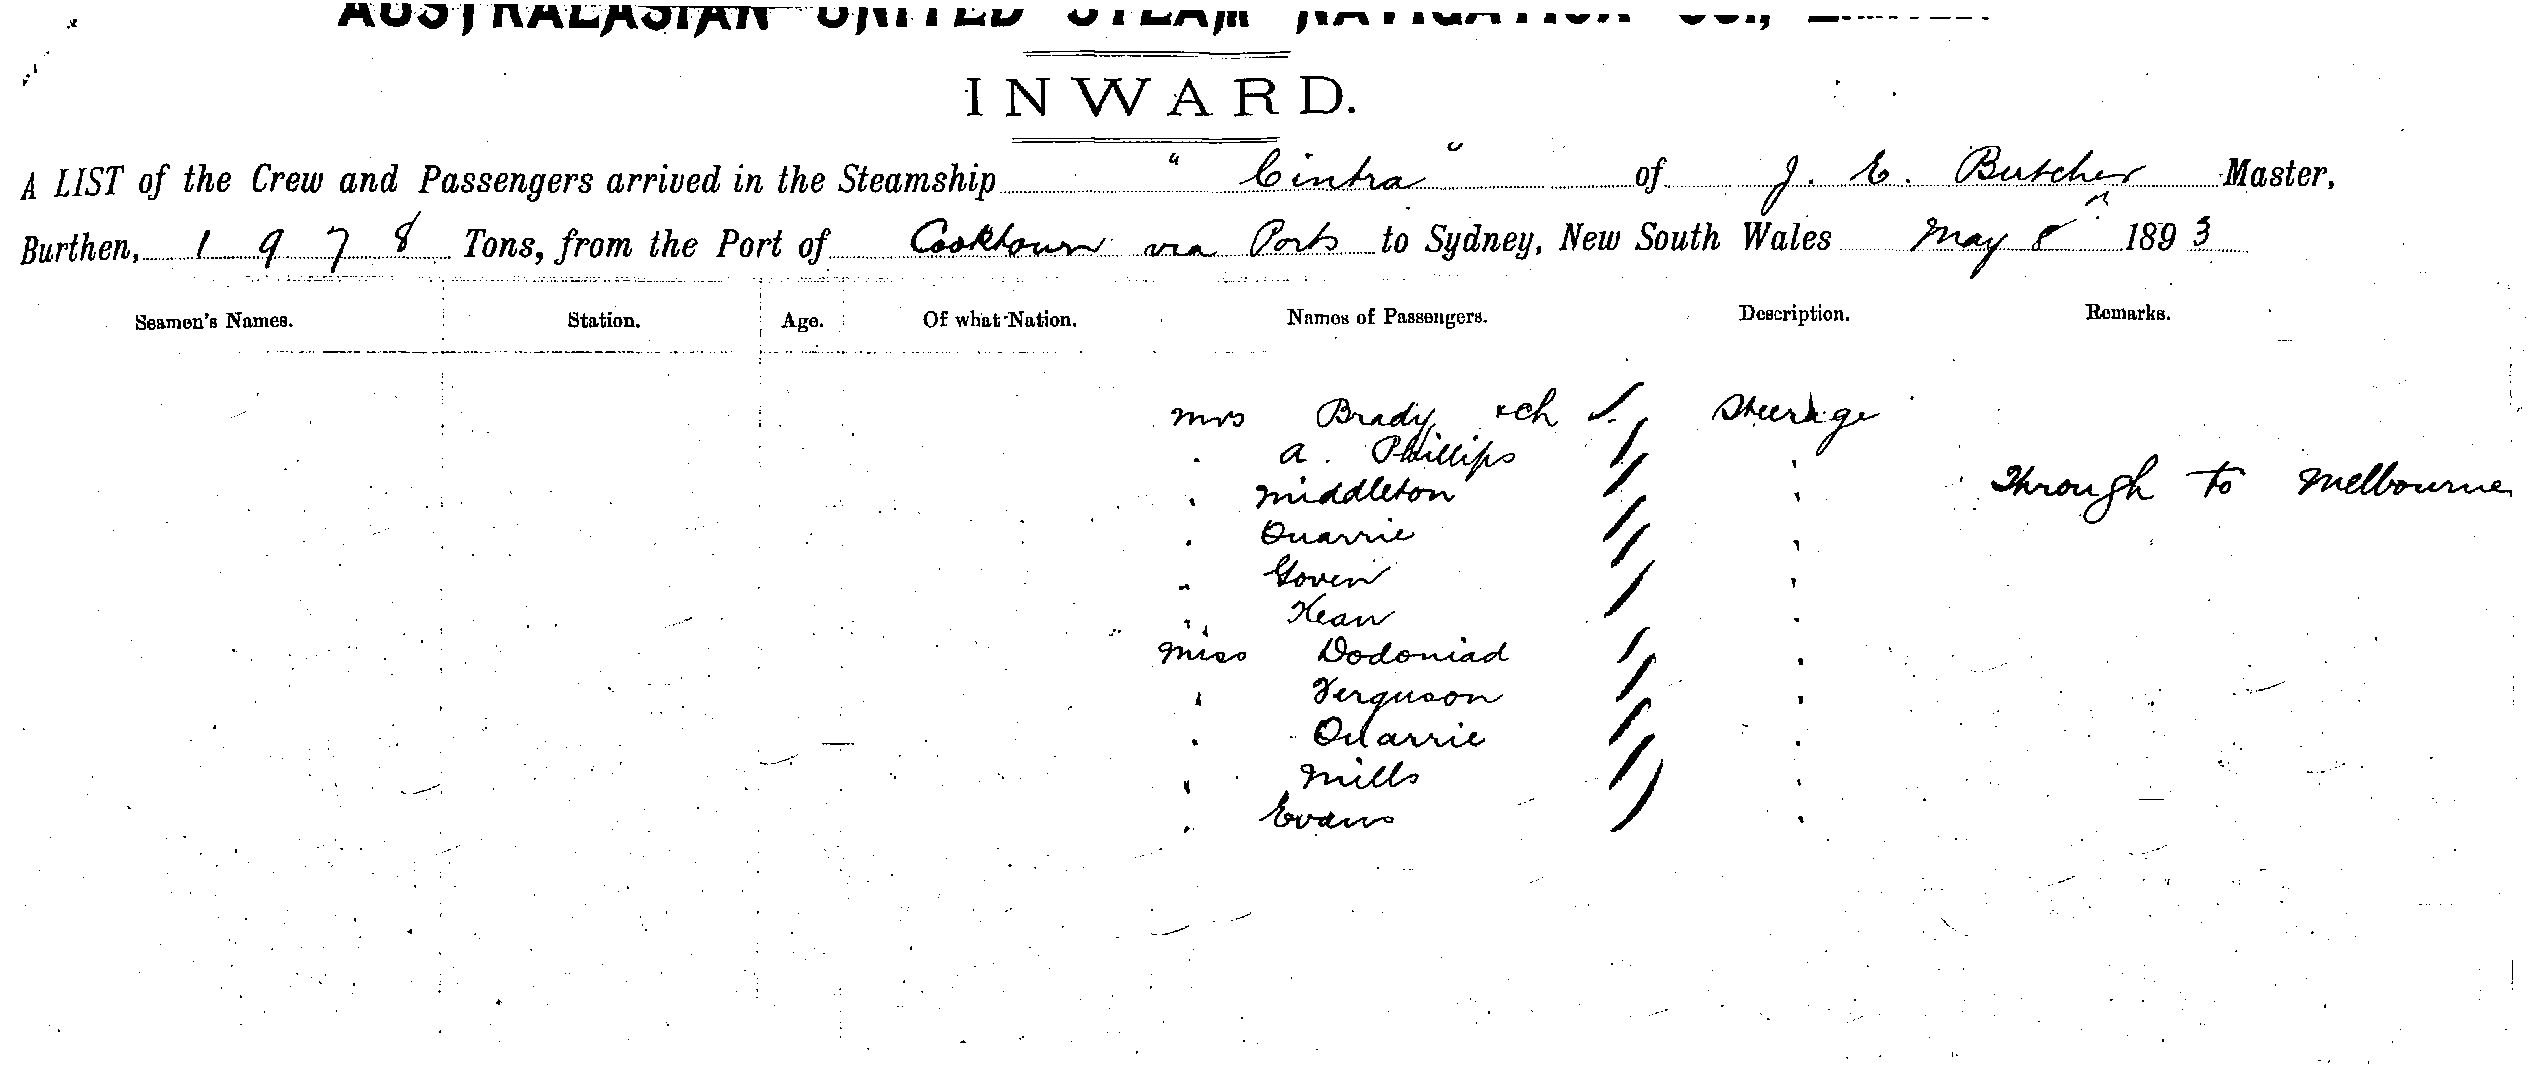 AUSTRALASIAN UNITED STEAM NAVIGATION CO.,
INWARD.
A LIST of the Crew and Passengers arrived in the Steamship "Cintra" of J. E. Butcher Master,
Burthen, 1978 Tons, from the Port of Cooktown via Ports to Sydney, New South Wales May 8th 1893
Seamen's Names. Station. Age. Of what Nation. Names of Passengers. Description. Remarks.
Mrs Brady +ch Steerage
" A. Phillips "
" Middleton " Through to Melbourne
" Quarrie "
" Goven "
" Kean "
Miss Dodoniad "
" Ferguson "
" Quarrie "
" Mills "
" Evans "